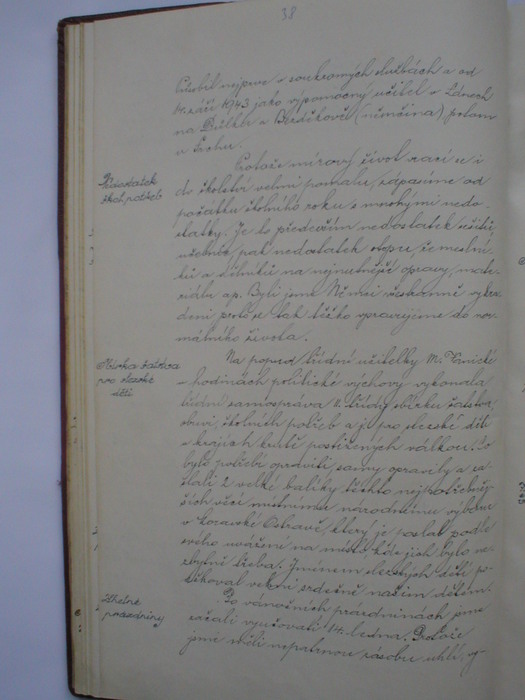 38
Působil nejprve v soukromých službách a od
14. září 1943 jako výpomocný učitel v Lánech
na Důlku a Bezděkově (němčina) potom
v Srchu.
Nedostatek
škol. potřeb
Protože mírový život vrací se i
do školství velmi pomalu, zápasíme od
počátku školního roku s mnohými nedo-
statky. Je to především nedostatek sešitů,
učebnic, pak nedostatek otopu, řemeslní-
ků a dělníků na nejnutnější opravy, mate-
riálu a p. Byli jsme Němci všestranně vykra-
deni proto se tak těžko vpravujeme do nor-
málního života.
Sbírka šatstva
pro slezské
děti
Na popud třídní učitelky M.
v hodinách politické výchovy vykonala
třídní samospráva II. třídy sbírku šatstva,
obuvi, školních potřeb a j. pro slezské děti
v krajích krutě postižených válkou. Co
bylo potřebí opraviti samy opravily a za-
slali 2 velké balíky těchto nejpotřebněj-
ších věcí místnímu národnímu výboru
v Moravské Ostravě, který je poslal podle
svého uvážení na místa, kde jich bylo ne-
zbytně třeba. Jménem slezských dětí po-
děkoval velmi srdečně našim dětem.
Uhelné
prázdniny
Po vánočních prázdninách jsme
začali vyučovati 14. ledna. Protože
jsme měli nepatrnou zásobu uhlí, vy-